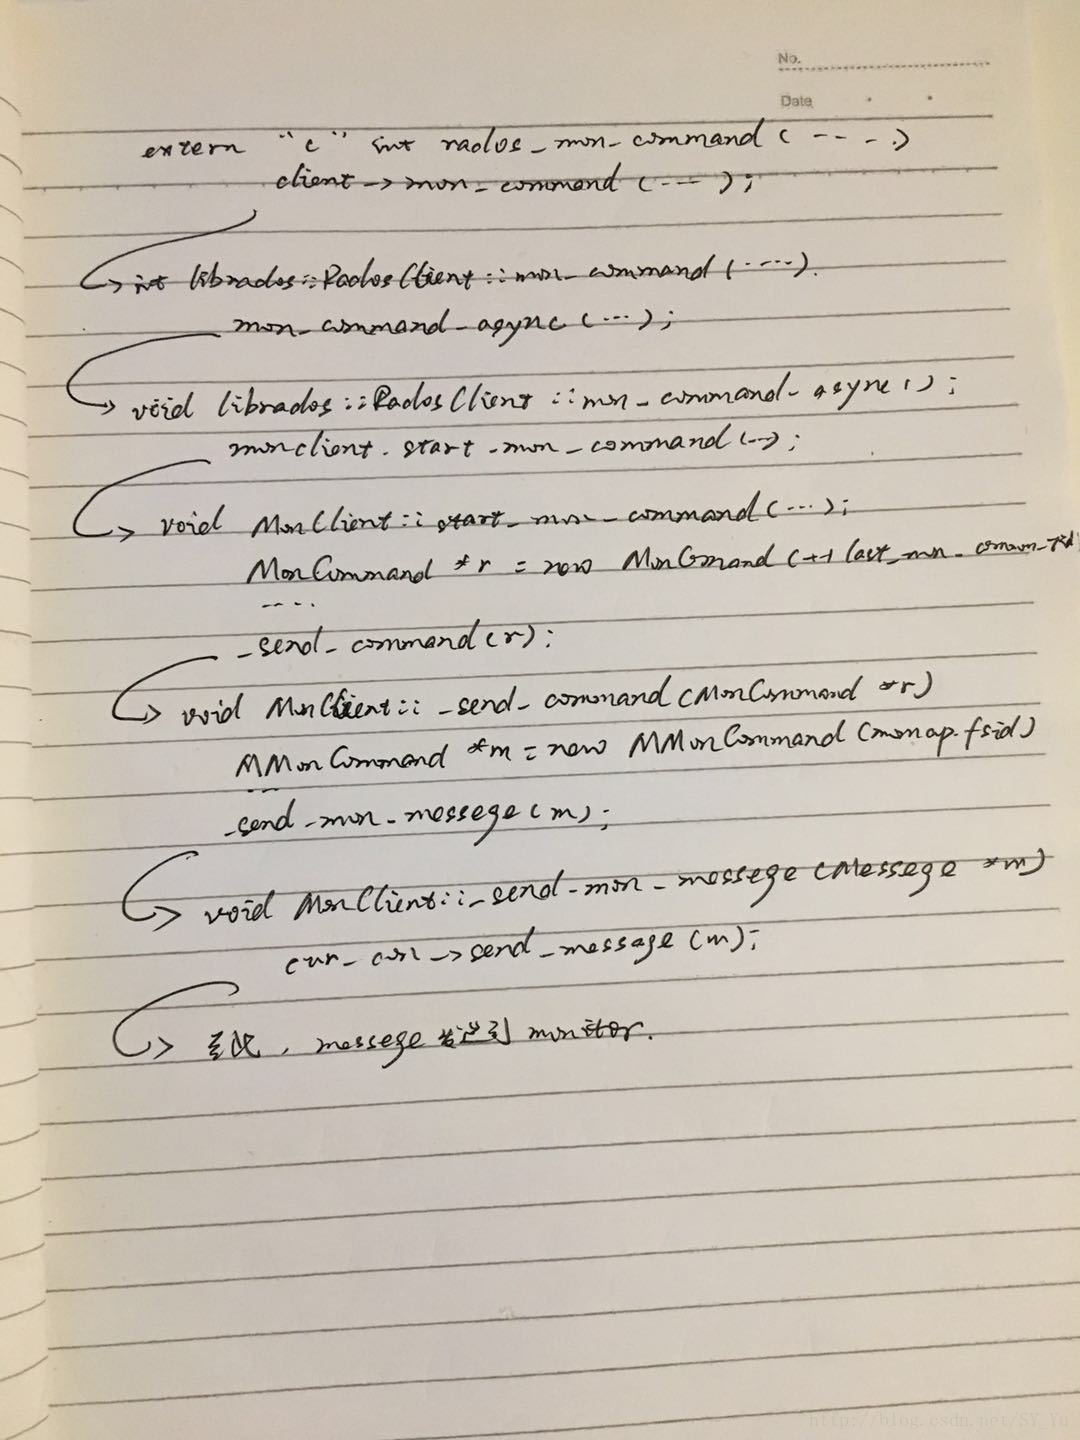 No.
Date
extern "c" int rados_mon_command (----)
client->mon_command (---);
int librados::RadosClient::mon_command (----).
mon_command_async (...);
void librados::RadosClient::mon_command_async ();
monclient.start_mon_command(--);
void MonClient::start_mon_command(...);
MonCommand *r = new MonCommand (++last_mon_comman_tid)
....
_send_command(r);
void MonClient::_send_command (MonCommand *r)
MMonCommand *m = new MMonCommand (monmap.fsid)
...
_send_mon_messege (m);
void MonClient::_send_mon_messege (Messege *m)
cur_con->send_message (m);
至此, messege 发送到 monitor.
http://blog.csdn.net/SY_Yu